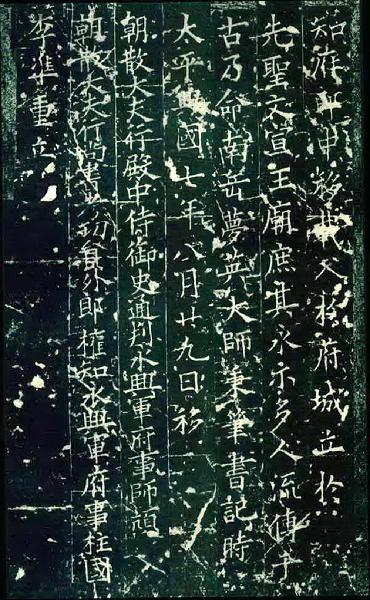 知府郎中移載入於府城立於
先聖文宣王廟庶其永示多人流傳千
古乃命南岳夢英大師秉筆書記時
太平興國七年八月廿九日移
朝散大夫行殿中侍御史通判永興軍府事師頏
朝散大夫行尚書兵部員外郎權知永興軍府事柱國
李準重立